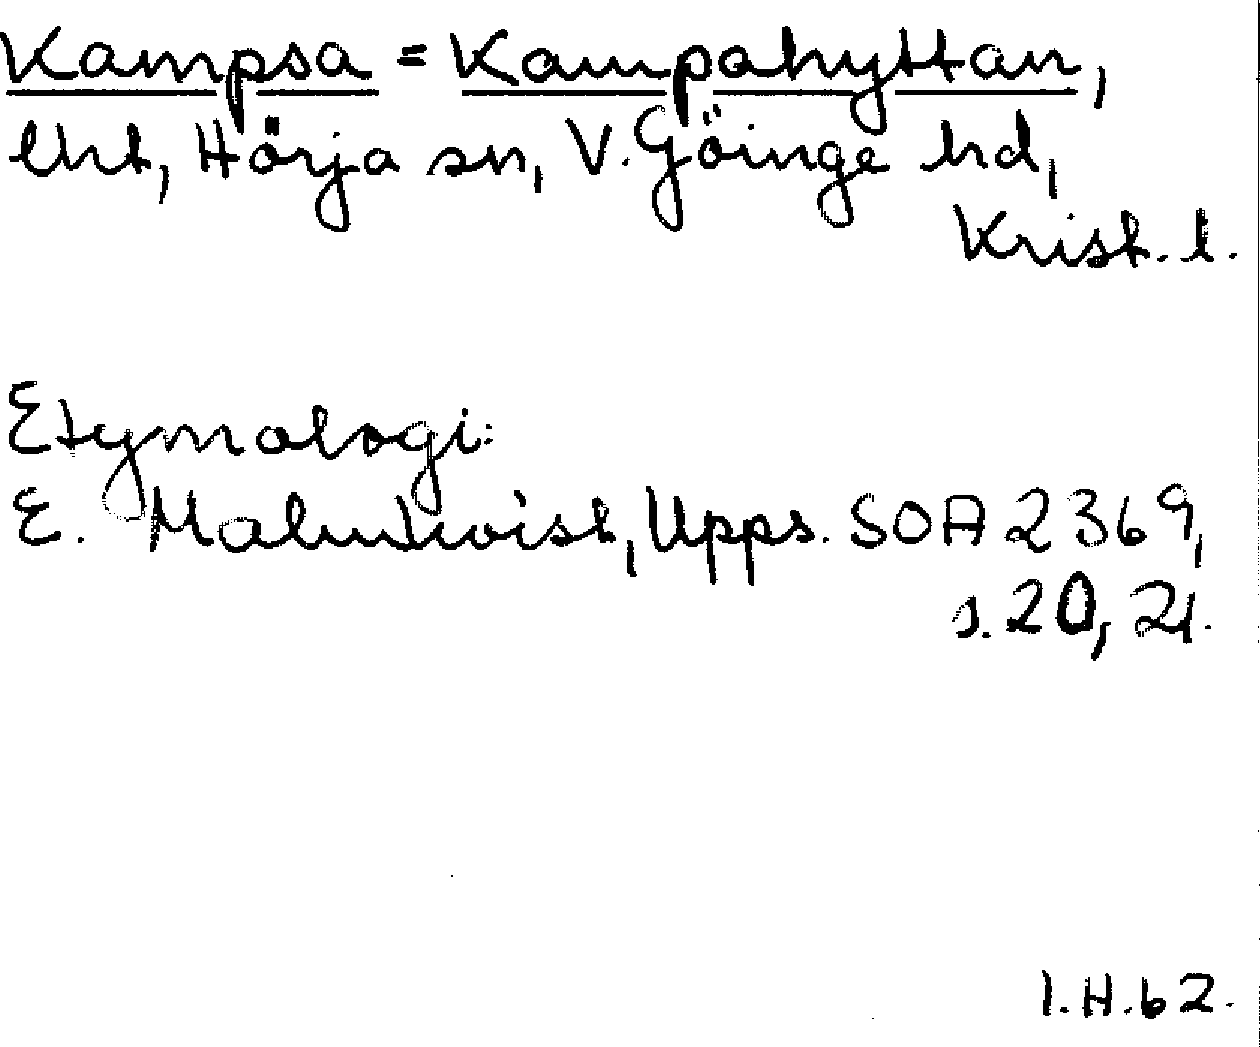 Kampsa = Kampahyttan,
lht, Hörja sn, V. Göinge hd,
Krist. l.
Etymologi:
E. Malmkvist, Upps. SOA 2369,
s. 20, 21.
I.H.62.